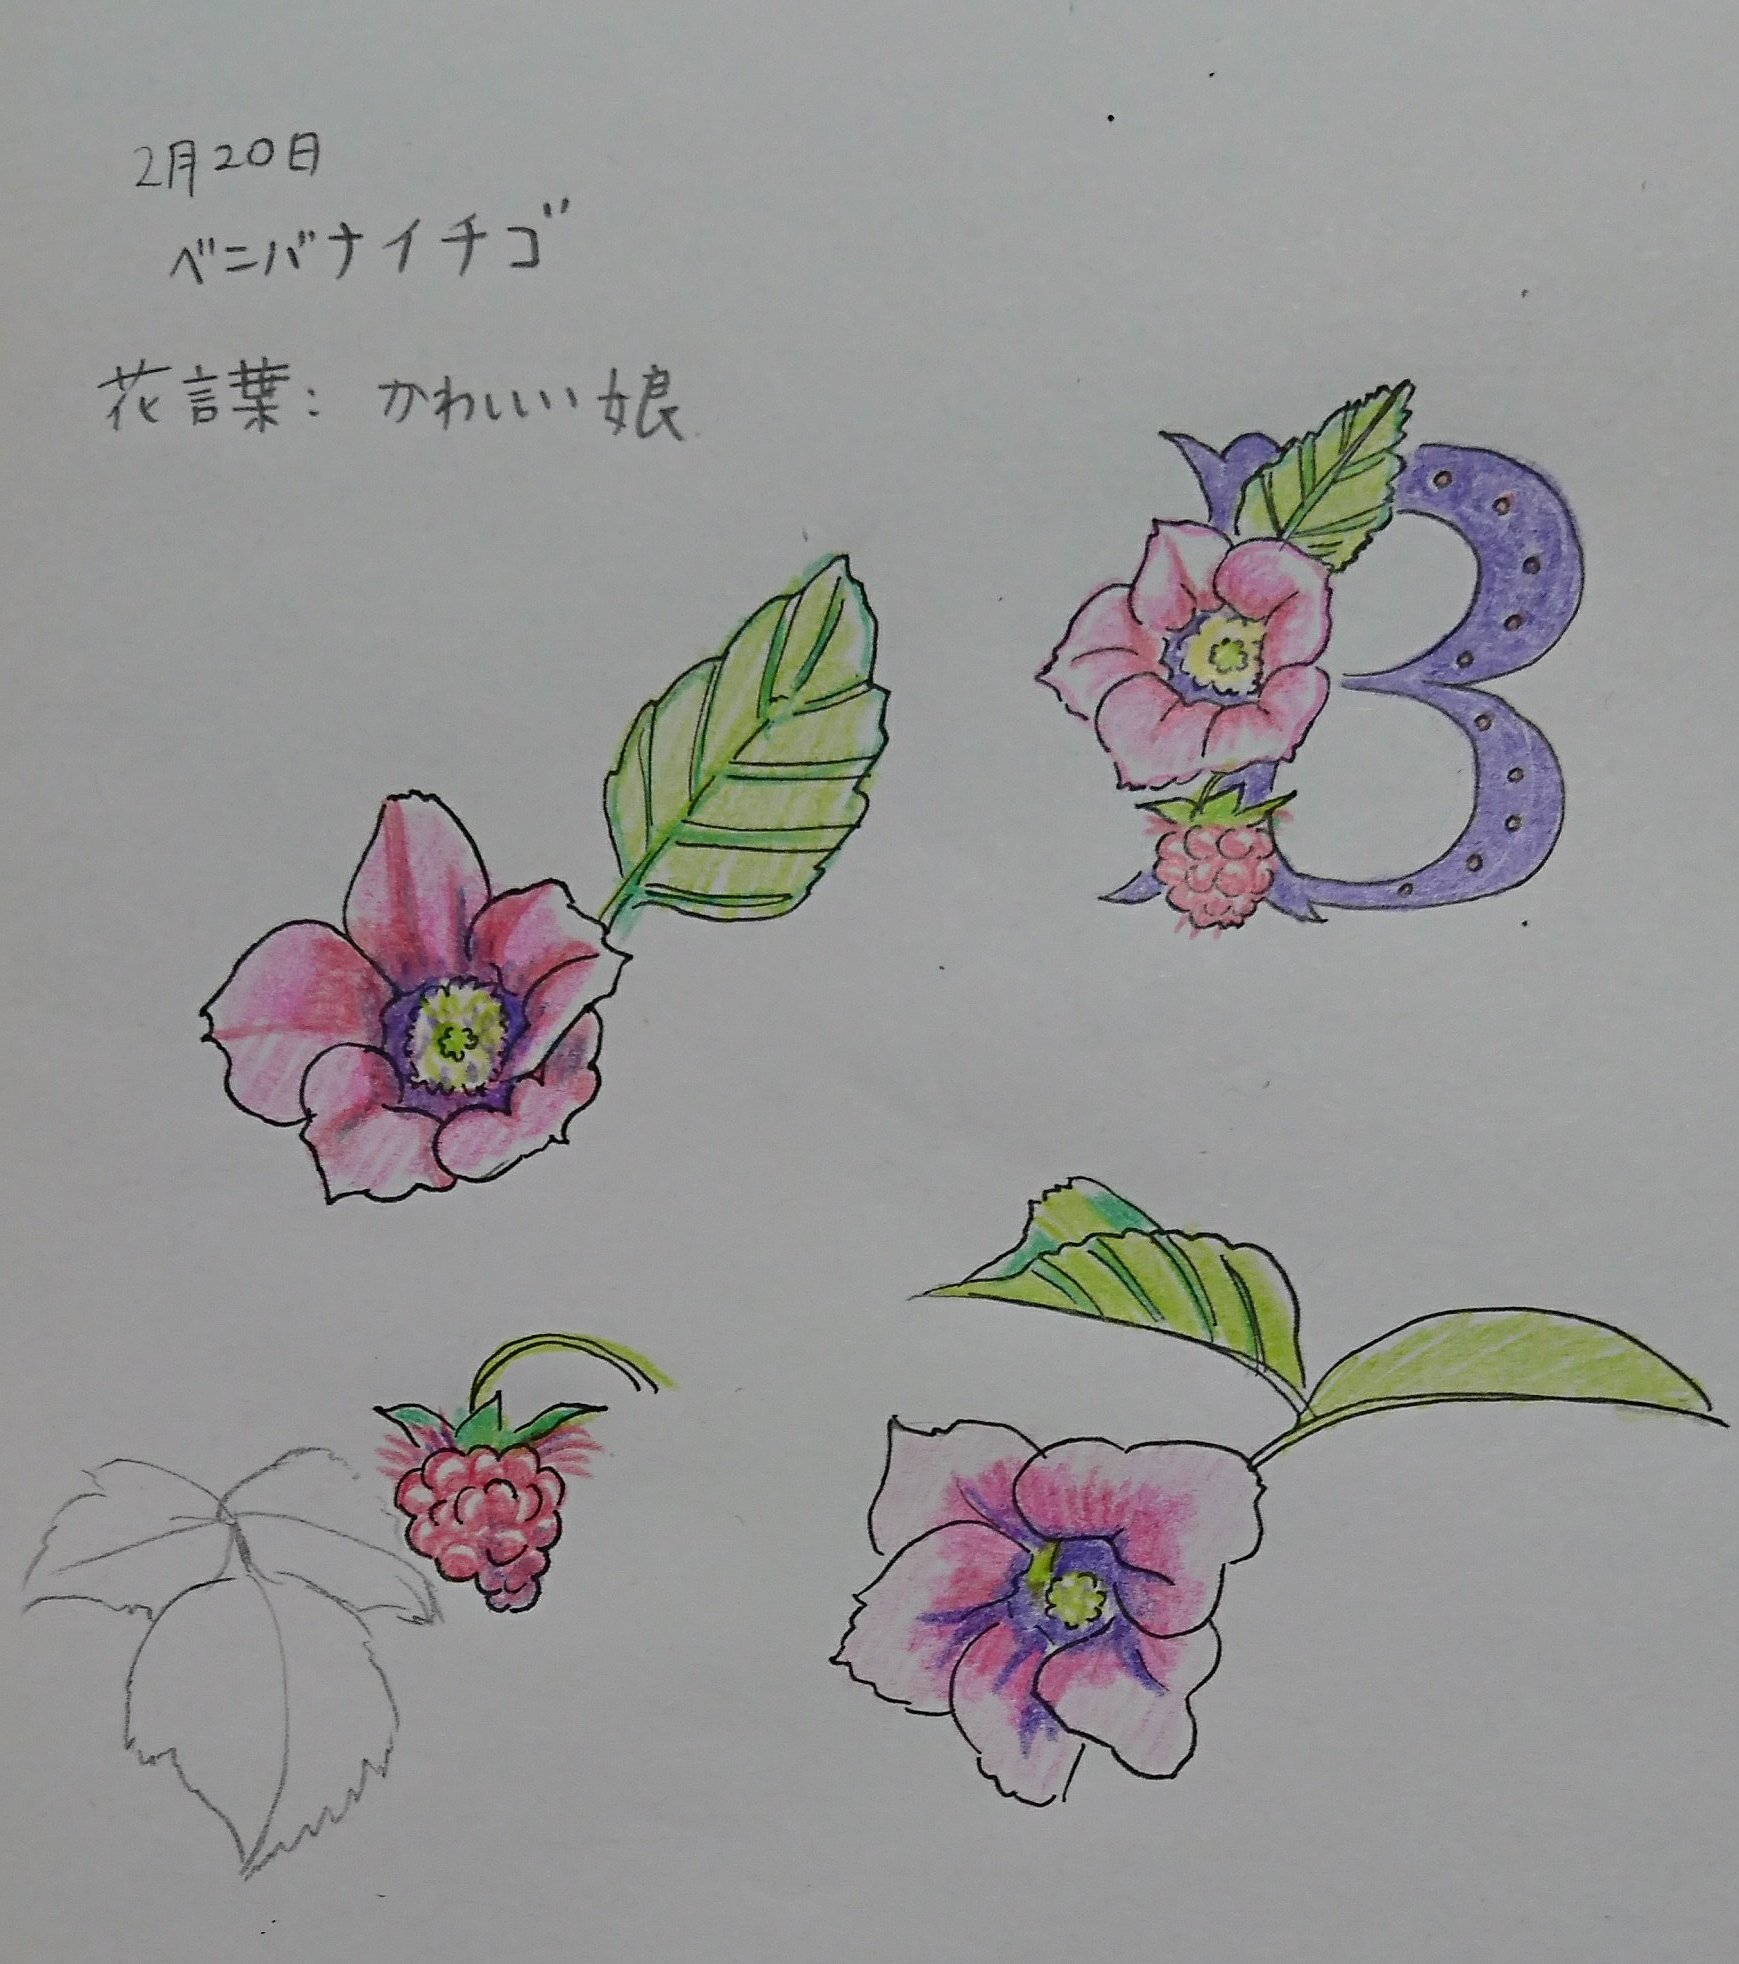 2月20日
ベニバナイチゴ
花言葉: かわいい娘
B